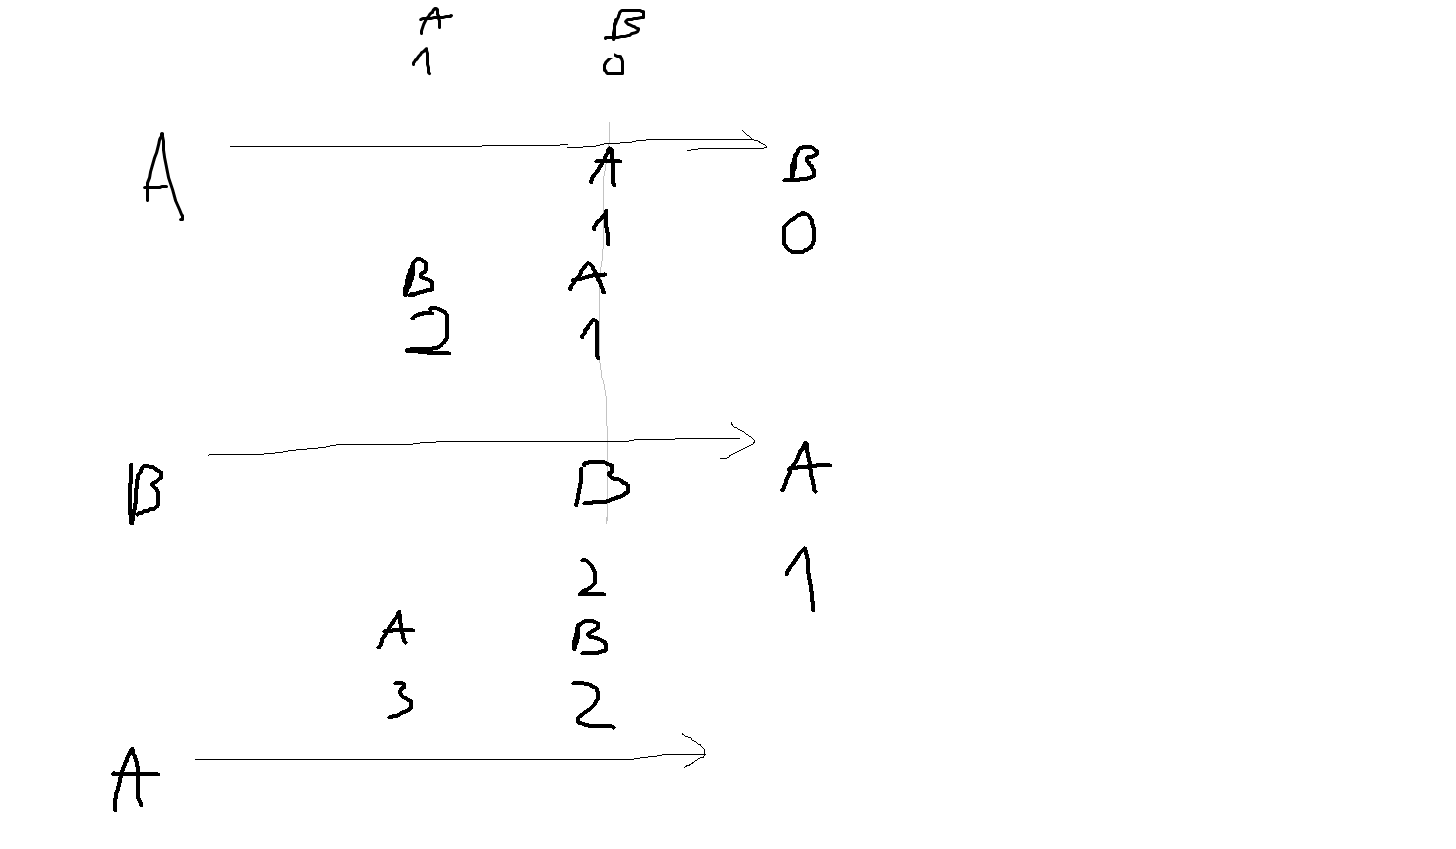 A B
1 0
A A B
1 0
B A
2 1
B B A
2 1
A B
3 2
A